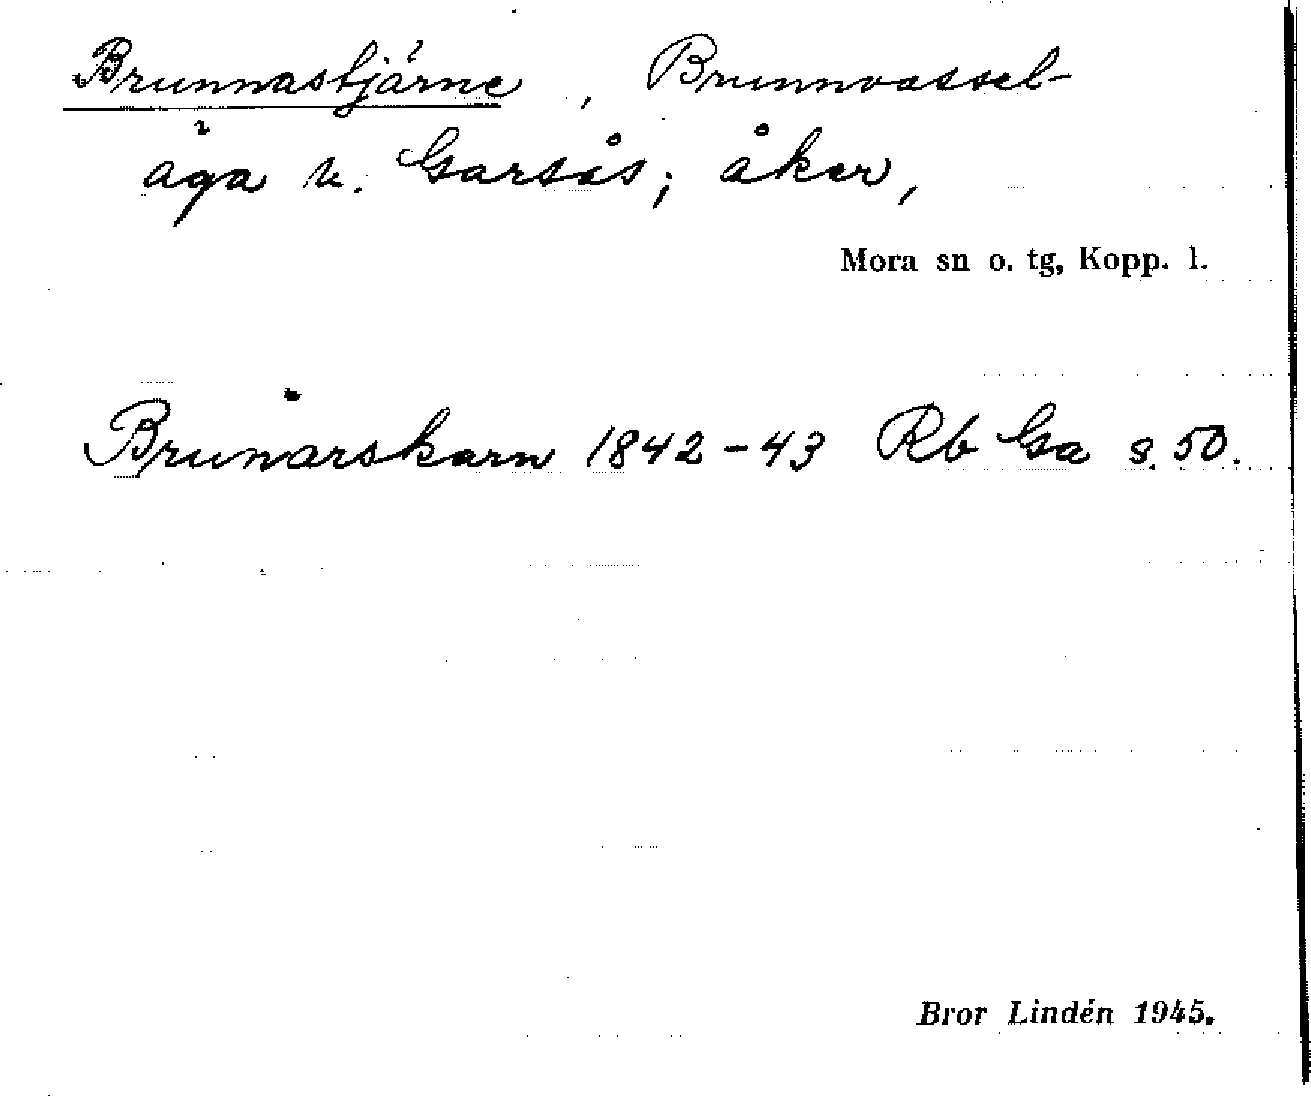 Brunnastjärne, Brunnvassel-
åga k. Garsås; åker,
Mora sn o. tg, Kopp. l.
Brunarskarn 1842-43 Rb Ga s. 50.
Bror Lindén 1945.